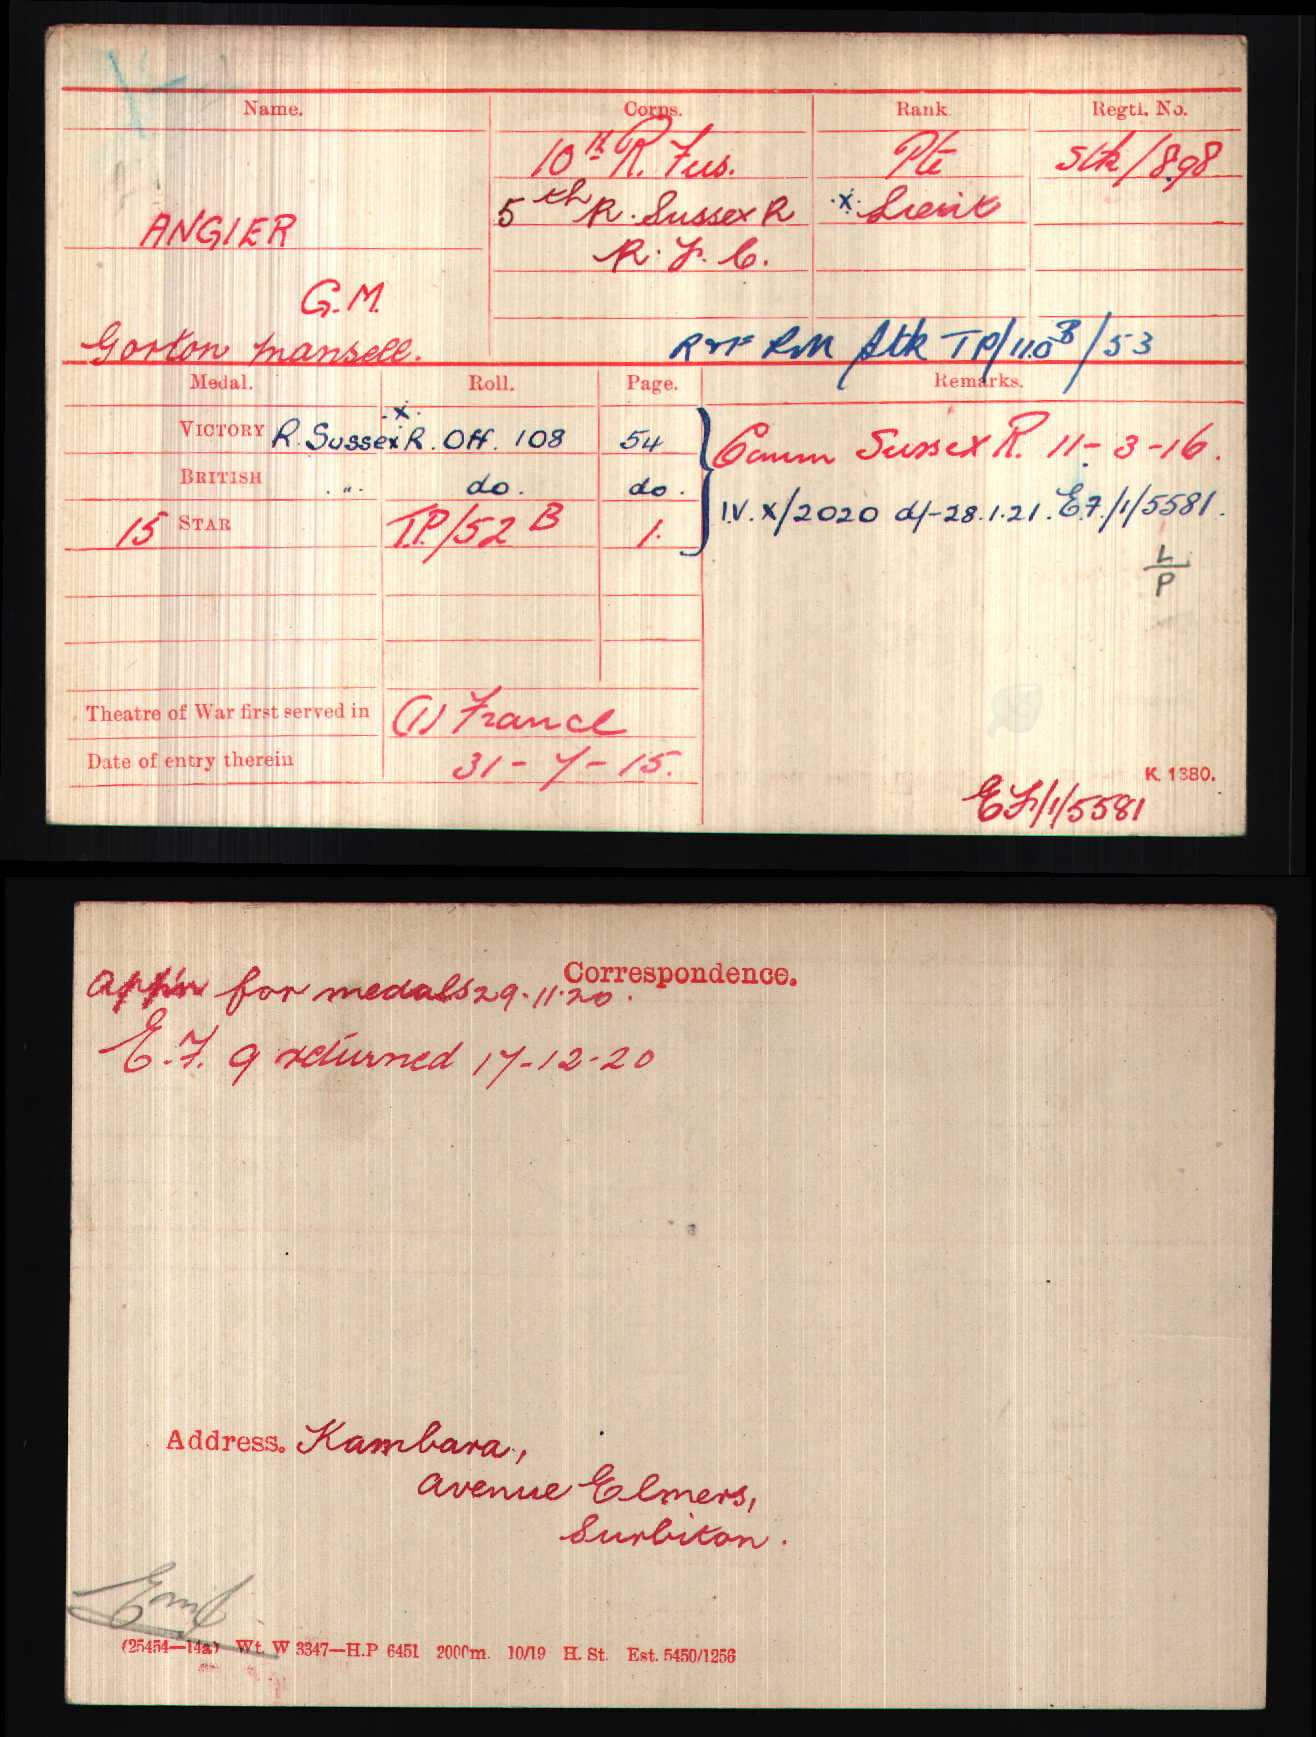 Name. Corps. Rank Regtl. No.
10th R. Fus. Pte Stk/898
ANGIER 5th R. Sussex R x Lieut
R. F. C.
G.M.
Gorton Mansell. Stk TP/110B/53
Medal. Roll. Page. Remarks.
VICTORY R. Sussex R. Off. 108 54 Comm Sussex R. 11-3-16.
x
BRITISH " do. do. I.V. X/2020 d/-28.1.21. E.F./1/5581.
15 STAR T.P./52 B 1.
L
P
Theatre of War first served in (1) France
Date of entry therein 31-7-15.
K. 1380.
EF/1/5581
Correspondence.
Appn for medals 29.11.20.
E.F. 9 returned 17-12-20
Address. Kambara,
Avenue Elmers,
Surbiton.
(25454—14a) Wt. W 3347—H.P 6451 2000m. 10/19 H. St. Est. 5450/1256